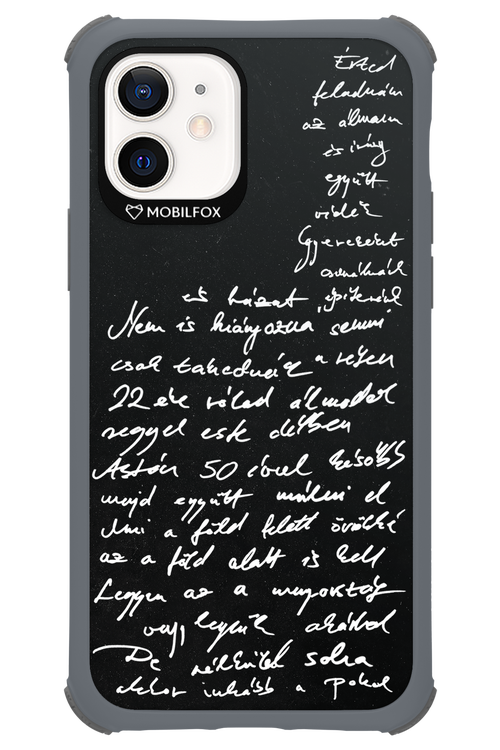 MOBILFOX
Érted
feladnám
az álmom
és így
együtt
vidék
Gyerekeket
csinálnánk
és házat építenénk
Nem is hiányozna semmi
csak takaródnék a
22 éve rólad álmodok
reggel este délben
Aztán 50 évvel később
majd együtt múlni el
Ami a föld felett örökké
az a föld alatt is kell
Legyen az a mennyország
vagy legyünk akárhol
De nélküled soha
akkor inkább a Pokol